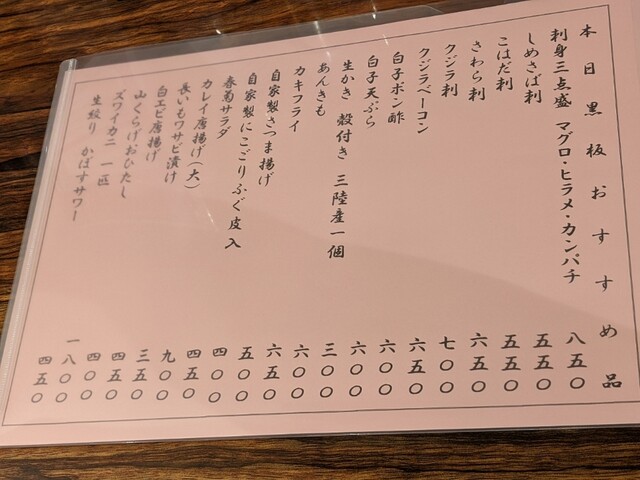 本日黒板おすすめ品
刺身三点盛 マグロ・ヒラメ・カンパチ 八五〇
しめさば刺 五五〇
こはだ刺 五五〇
さわら刺 六五〇
クジラ刺 七〇〇
クジラベーコン 六五〇
白子ポン酢 六〇〇
白子天ぷら 六〇〇
生かき 殻付き 三陸産一個 三〇〇
あんきも 六〇〇
カキフライ 六五〇
自家製さつま揚げ 五〇〇
自家製にこごりふぐ皮入 四〇〇
春菊サラダ 四五〇
カレイ唐揚げ(大) 九〇〇
長いもワサビ漬け 三五〇
白エビ唐揚げ 四五〇
山くらげおひたし 四〇〇
ズワイカニ 一匹 一八〇〇
生絞り かぼすサワー 四五〇